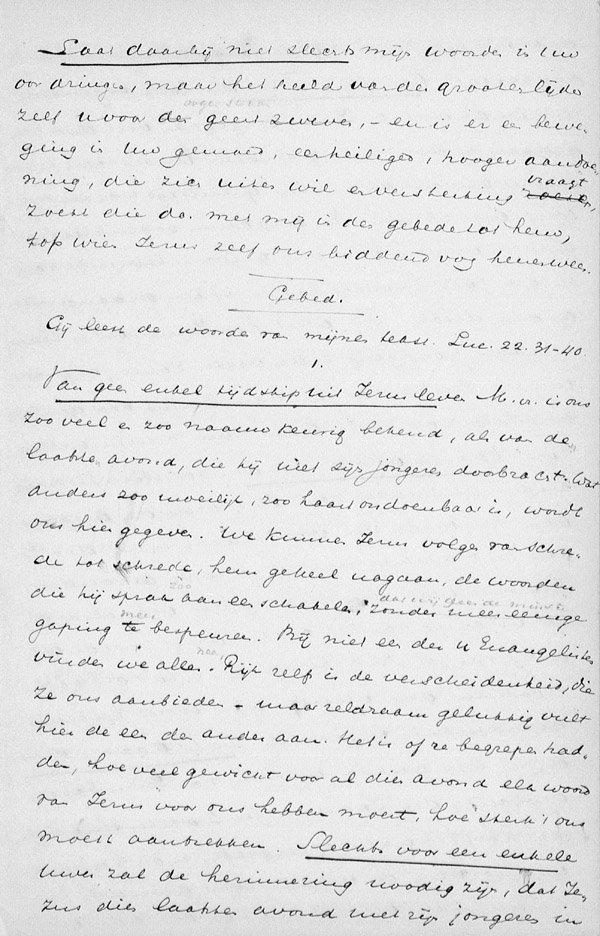 Laat daarbij niet slechts mijn woorden in Uw
oor dringen, maar het beeld van den grooten lijder
zelf u voor den geest zweven, – en is er een bewe-
ging in Uw gemoed, een heiligen, hooger aandoe-
ning, die zich uiten wil en versterking zoeken, vraagt
zoekt die dan met mij in den gebede tot hem,
tot wien Jezus zelf ons biddend nog henenwees.
Gebed.
Gij leest de woorden van mijnen tekst. Luc. 22. 31-40.
1.
Van geen enkel tijdstip uit Jezus leven M. v. is ons
zoo veel en zoo naauwkeurig bekend, als van den
laatsten avond, die hij met zijn jongeren doorbracht. Wat
anders zoo moeilijk, zoo haast ondoenbaar is, wordt
ons hier gegeven. We kunnen Jezus volgen van schre-
de tot schrede, hem geheel nagaan, de woorden
die hij sprak aaneenschakelen, zonder meer eenige
gaping te bespeuren. Bij niet een der 4 Evangelisten
vinden we alles. Rijk zelf is de verscheidenheid, die
ze ons aanbieden – maar zeldzaam gelukkig vult
hier de een den ander aan. Het is of ze begrepen had-
den, hoe veel gewicht voor al dien avond elk woord
van Jezus voor ons hebben moest, hoe sterk 't ons
moest aantrekken. Slechts voor een enkele
Uwer zal de herinnering noodig zijn, dat Je-
zus dien laatsten avond met zijn jongeren in